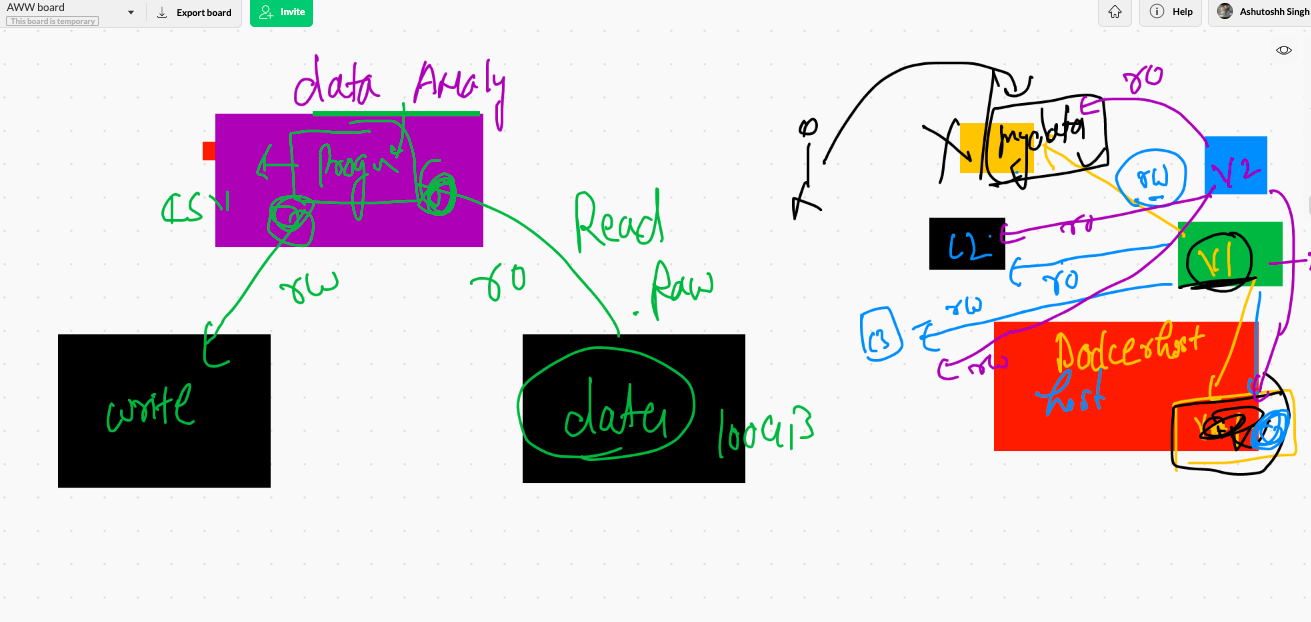 AWW board
This board is temporary
Export board
Invite
Help
Ashutoshh Singh
data Analy
rw
ro
Read
Raw
write
data
ro
mydata
rw
V2
C2
ro
V1
ro
rw
C3
rw
Dockerhost
host